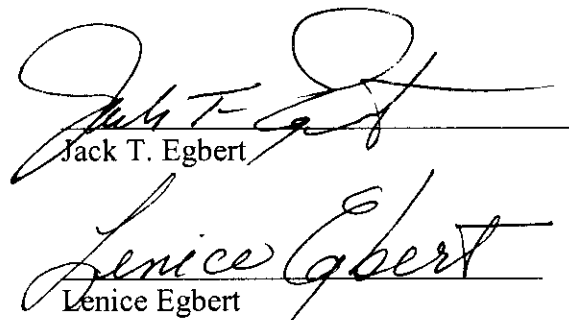 Jack T Egbert
Jack T. Egbert
Lenice Egbert
Lenice Egbert